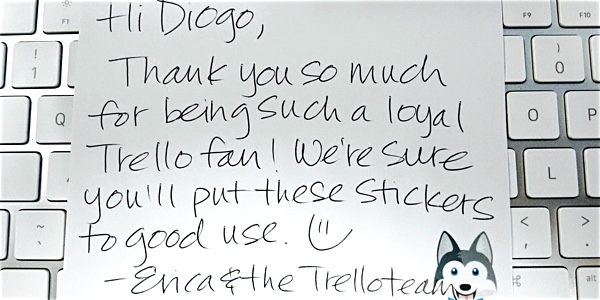 Hi Diogo,
Thank you so much
for being such a loyal
Trello fan! We're sure
you'll put these stickers
to good use. :)
-Erica & the Trello team
F1
F9
F10
!
1
)
0
Q
O
P
L
~
`
<
,
>
.
⌘